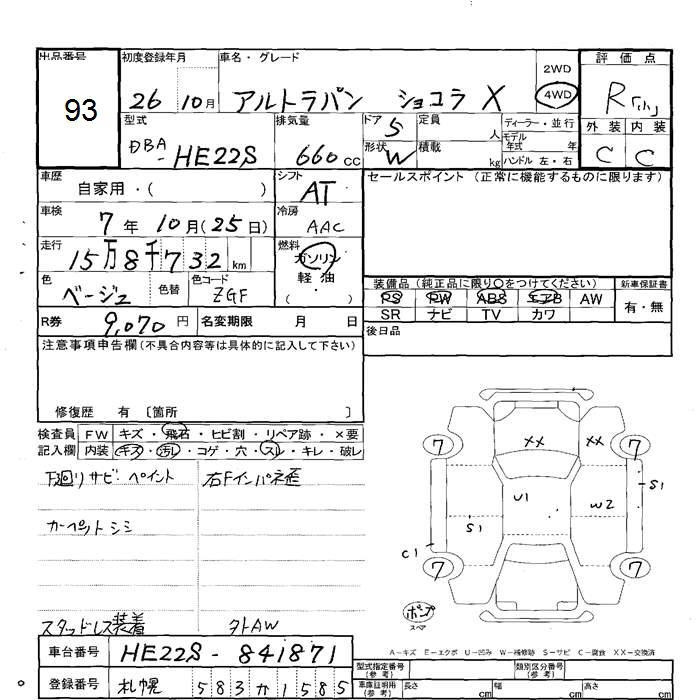 出品番号 初度登録年月 車名・グレード 評価点
93 26 10月 アルトラパン ショコラ X 2WD 4WD R「小」
型式 排気量 ドア 5 定員 人 ディーラー・並行 外装 内装
DBA-HE22S 660cc 形状 W 積載 kg モデル年式 年 ハンドル 左・右 C C
車歴 自家用・( ) シフト AT セールスポイント (正常に機能するものに限ります)
車検 7年 10月(25日) 冷房 AAC
走行 15万8千732km 燃料 ガソリン 軽油 ( ・ )
色 ベージュ 色替 色コード ZGF
装備品 (純正品に限り○をつけてください) 新車保証書
PS PW ABS エアB AW 有・無
SR ナビ TV カワ
R券 9,070円 名変期限 月 日 後日品
注意事項申告欄 (不具合内容等は具体的に記入して下さい)
修復歴 有 〔箇所 〕
検査員 FW キズ・飛石・ヒビ割・リペア跡・×要
記入欄 内装 キズ・汚レ・コゲ・穴・スレ・キレ・破レ
下廻リサビ・ペイント 右Fインパネ歪
カーペットシミ
スタッドレス装着 外AW
XX XX
7 7
U1 W2 S1
S1
C1
7 7
ポンプ
スペア
A-キズ E-エクボ U-凹み W-補修跡 S-サビ C-腐食 XX-交換済
車台番号 HE22S-841871
型式指定番号 (参考) 類別区分番号 (参考)
登録番号 札幌 583か1585
車庫証明用 (参考) 長さ cm 幅 cm 高さ cm